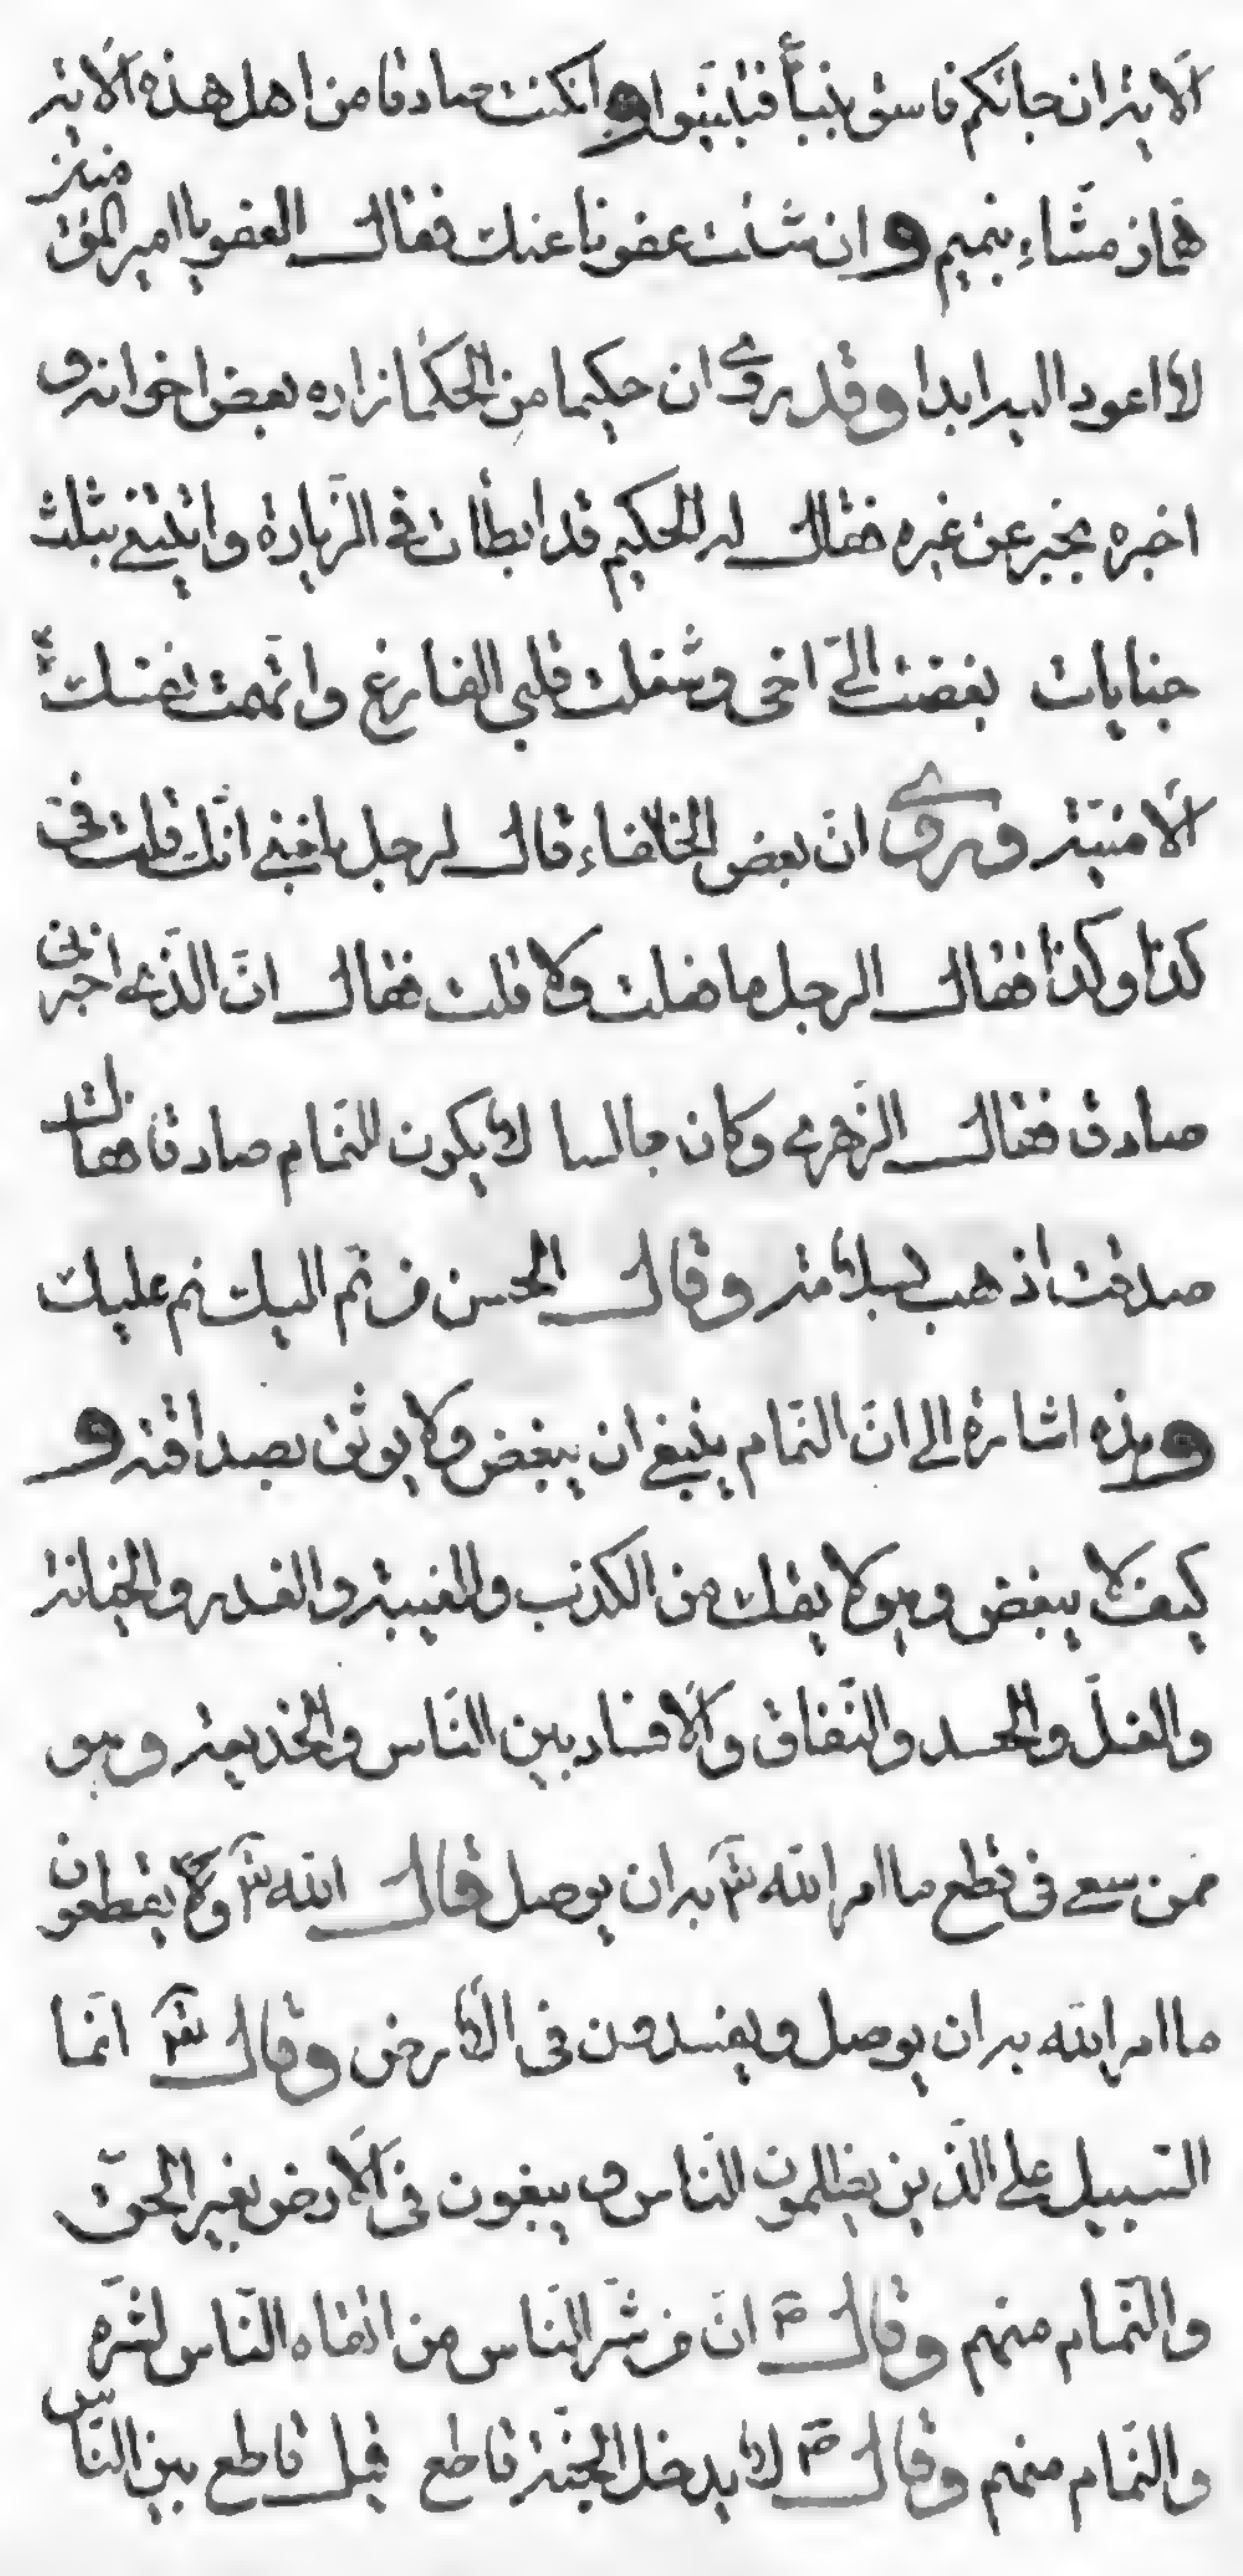 الاية ان جائكم فاسق بنبأ فتبينوا وان كنت صادقا من اهل هذه الاية
هماز مشاء بنميم وان شئت عفونا عنك فقال العفو يا امير المؤمنين
لا اعود اليه ابدا وقد روى ان حكيما من الحكما زاره بعض اخوانه و
اخبره بخبر عن غيره فقال له الحكيم قد ابطأت فى الزيارة واتيتنى بثلث
جنايات بغضت الىّ اخى وشغلت قلبى الفارغ واتهمت نفسك
الامنية وروى انّ بعض الخلفاء قال لرجل بلغنى انّك قلت فىّ
كذا وكذا فقال الرجل ما فعلت ولا قلت فقال انّ الذى اخبرنى
صادق فقال الزهرى وكان جالسا لا يكون النمّام صادقا فقال
صدقت اذهب بسلامة وقال الحسن من نمّ اليك نم عليك
وهذه اشارة الى انّ النمّام ينبغى ان يبغض ولا يوثق بصداقته و
كيف لا يبغض وهو لا يفك من الكذب والغيبة والغدر والخيانة
والغلّ والحسد والنّفاق والافساد بين النّاس والخديعة وهو
ممن سعى فى قطع ما امر الله تع به ان يوصل قال الله تع ويقطعون
ما امر الله به ان يوصل ويفسدون فى الارض وقال تع انّما
السّبيل على الذين يظلمون النّاس و يبغون فى الارض بغير الحقّ
والنّمام منهم وقال ص انّ من شرّ النّاس من اتقاه النّاس لشرّه
والنمّام منهم وقال ص لا يدخل الجنّة قاطع قيل قاطع بين النّاس